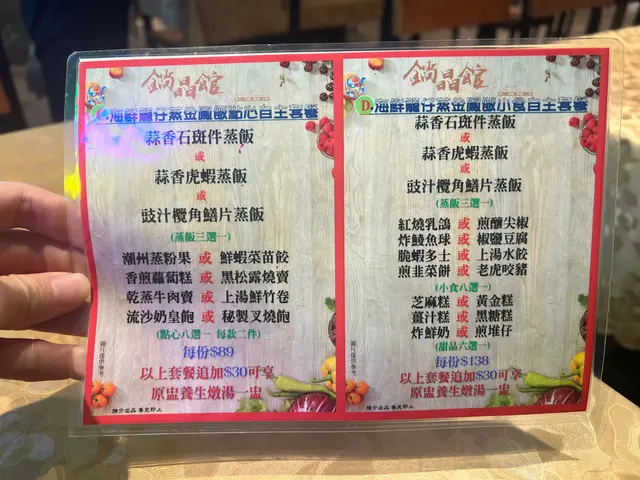 鍋晶館
C.海鮮籠仔蒸金鳳飯點心自主套餐
蒜香石斑件蒸飯
或
蒜香虎蝦蒸飯
或
豉汁欖角鱔片蒸飯
(蒸飯三選一)
潮州蒸粉果 或 鮮蝦菜苗餃
香煎蘿蔔糕 或 黑松露燒賣
乾蒸牛肉賣 或 上湯鮮竹卷
流沙奶皇飽 或 秘製叉燒飽
(點心八選一 每款二件)
每份$89
以上套餐追加$30可享
原盅養生燉湯一盅
圖片僅供參考
推介出品 售完即止
鍋晶館
D.海鮮籠仔蒸金鳳飯小食自主套餐
蒜香石斑件蒸飯
或
蒜香虎蝦蒸飯
或
豉汁欖角鱔片蒸飯
(蒸飯三選一)
紅燒乳鴿 或 煎釀尖椒
炸鯪魚球 或 椒鹽豆腐
脆蝦多士 或 上湯水餃
煎韭菜餅 或 老虎咬豬
(小食八選一)
芝麻糕 或 黃金糕
薑汁糕 或 黑糖糕
炸鮮奶 或 煎堆仔
(甜品六選一)
每份$138
以上套餐追加$30可享
原盅養生燉湯一盅
圖片僅供參考
推介出品 售完即止